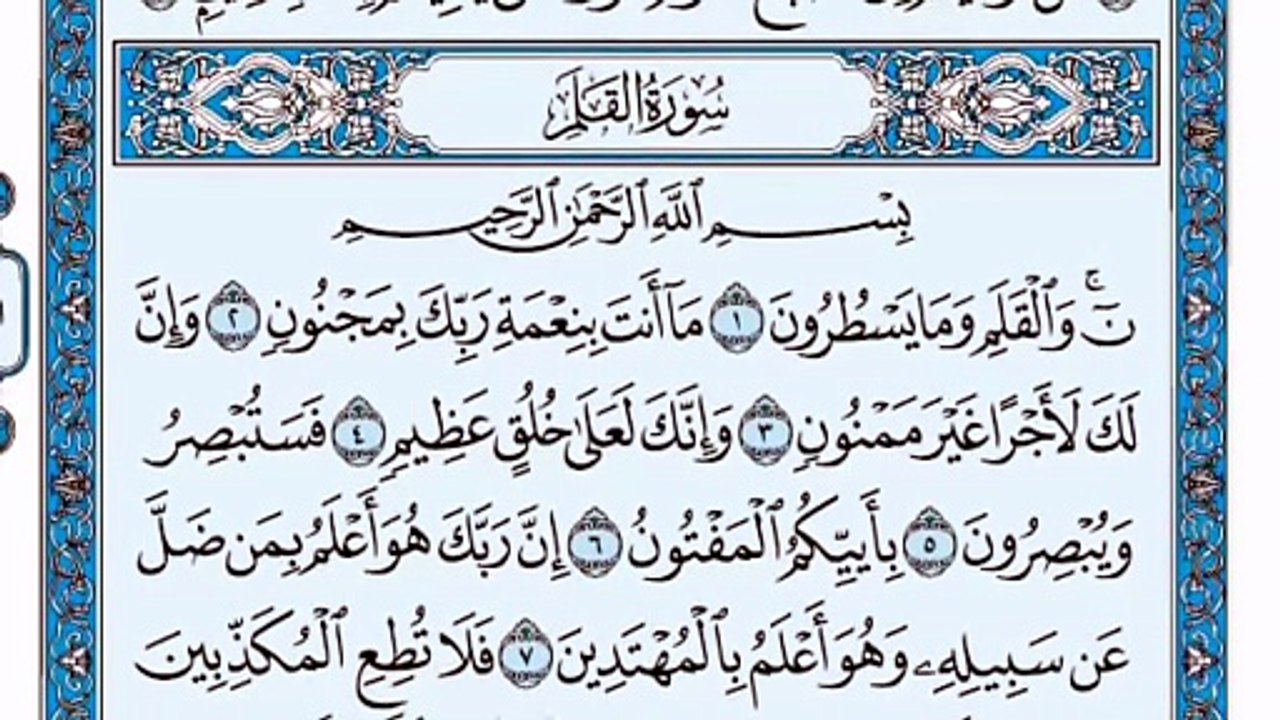 سُورَةُ القَلَمِ
بِسْمِ ٱللَّهِ ٱلرَّحْمَٰنِ ٱلرَّحِيمِ
نٓۚ وَٱلْقَلَمِ وَمَا يَسْطُرُونَ ١ مَآ أَنتَ بِنِعْمَةِ رَبِّكَ بِمَجْنُونٖ ٢ وَإِنَّ
لَكَ لَأَجْرًا غَيْرَ مَمْنُونٖ ٣ وَإِنَّكَ لَعَلَىٰ خُلُقٍ عَظِيمٖ ٤ فَسَتُبْصِرُ
وَيُبْصِرُونَ ٥ بِأَييِّكُمُ ٱلْمَفْتُونُ ٦ إِنَّ رَبَّكَ هُوَ أَعْلَمُ بِمَن ضَلَّ
عَن سَبِيلِهِۦ وَهُوَ أَعْلَمُ بِٱلْمُهْتَدِينَ ٧ فَلَا تُطِعِ ٱلْمُكَذِّبِينَ